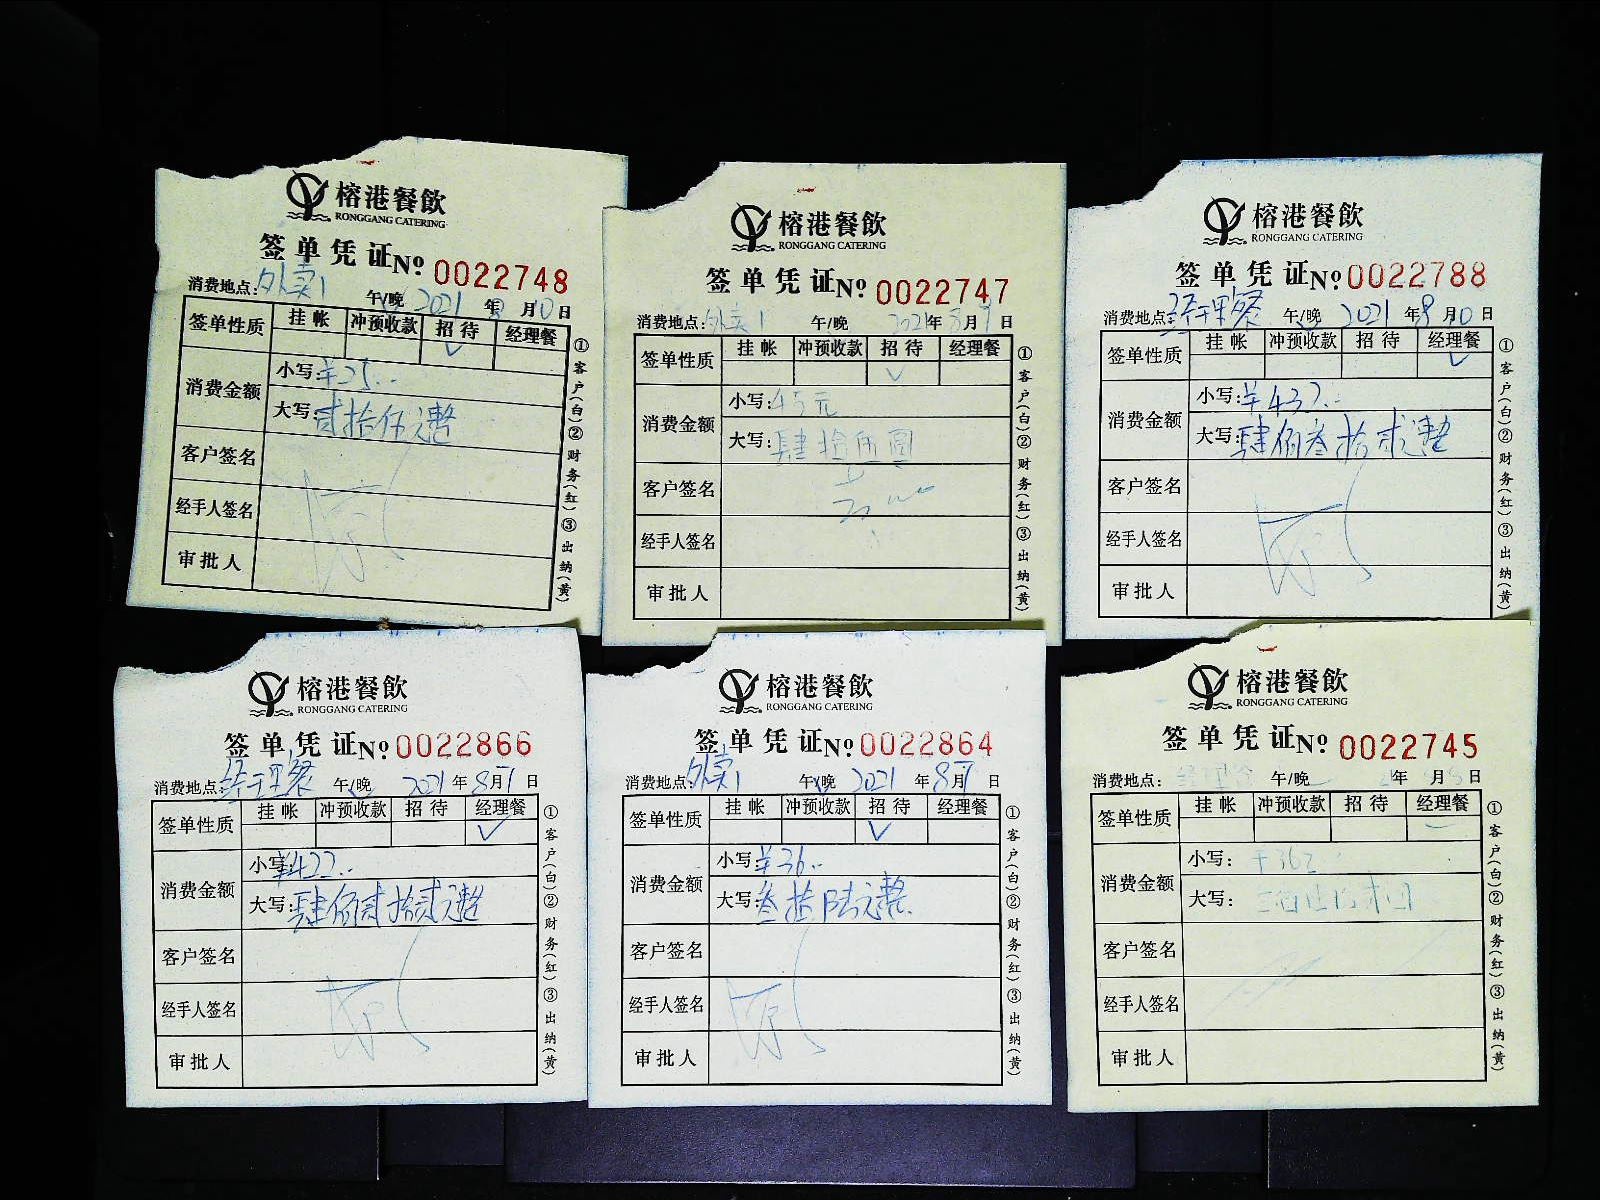 榕港餐飲
RONGGANG CATERING
签单凭证№ 0022748
消费地点:外卖1 午/晚 2021年8月10日
签单性质 挂帐 冲预收款 招待 经理餐
√
消费金额 小写:¥25..
大写:贰拾伍元整
客户签名
经手人签名
审批人
①客户(白)②财务(红)③出纳(黄)
榕港餐飲
RONGGANG CATERING
签单凭证№ 0022747
消费地点:外卖1 午/晚 2021年8月9日
签单性质 挂帐 冲预收款 招待 经理餐
√
消费金额 小写:45元
大写:肆拾伍圆
客户签名
经手人签名
审批人
①客户(白)②财务(红)③出纳(黄)
榕港餐飲
RONGGANG CATERING
签单凭证№ 0022788
消费地点:经理餐 午/晚 2021年8月10日
签单性质 挂帐 冲预收款 招待 经理餐
√
消费金额 小写:¥432..
大写:肆佰叁拾贰元整
客户签名
经手人签名
审批人
①客户(白)②财务(红)③出纳(黄)
榕港餐飲
RONGGANG CATERING
签单凭证№ 0022866
消费地点:经理餐 午/晚 2021年8月9日
签单性质 挂帐 冲预收款 招待 经理餐
√
消费金额 小写:¥422..
大写:肆佰贰拾贰元整
客户签名
经手人签名
审批人
①客户(白)②财务(红)③出纳(黄)
榕港餐飲
RONGGANG CATERING
签单凭证№ 0022864
消费地点:外卖1 午/晚 2021年8月9日
签单性质 挂帐 冲预收款 招待 经理餐
√
消费金额 小写:¥36..
大写:叁拾陆元整
客户签名
经手人签名
审批人
①客户(白)②财务(红)③出纳(黄)
榕港餐飲
RONGGANG CATERING
签单凭证№ 0022745
消费地点: 午/晚 年 月 日
签单性质 挂帐 冲预收款 招待 经理餐
消费金额 小写:362
大写:
客户签名
经手人签名
审批人
①客户(白)②财务(红)③出纳(黄)